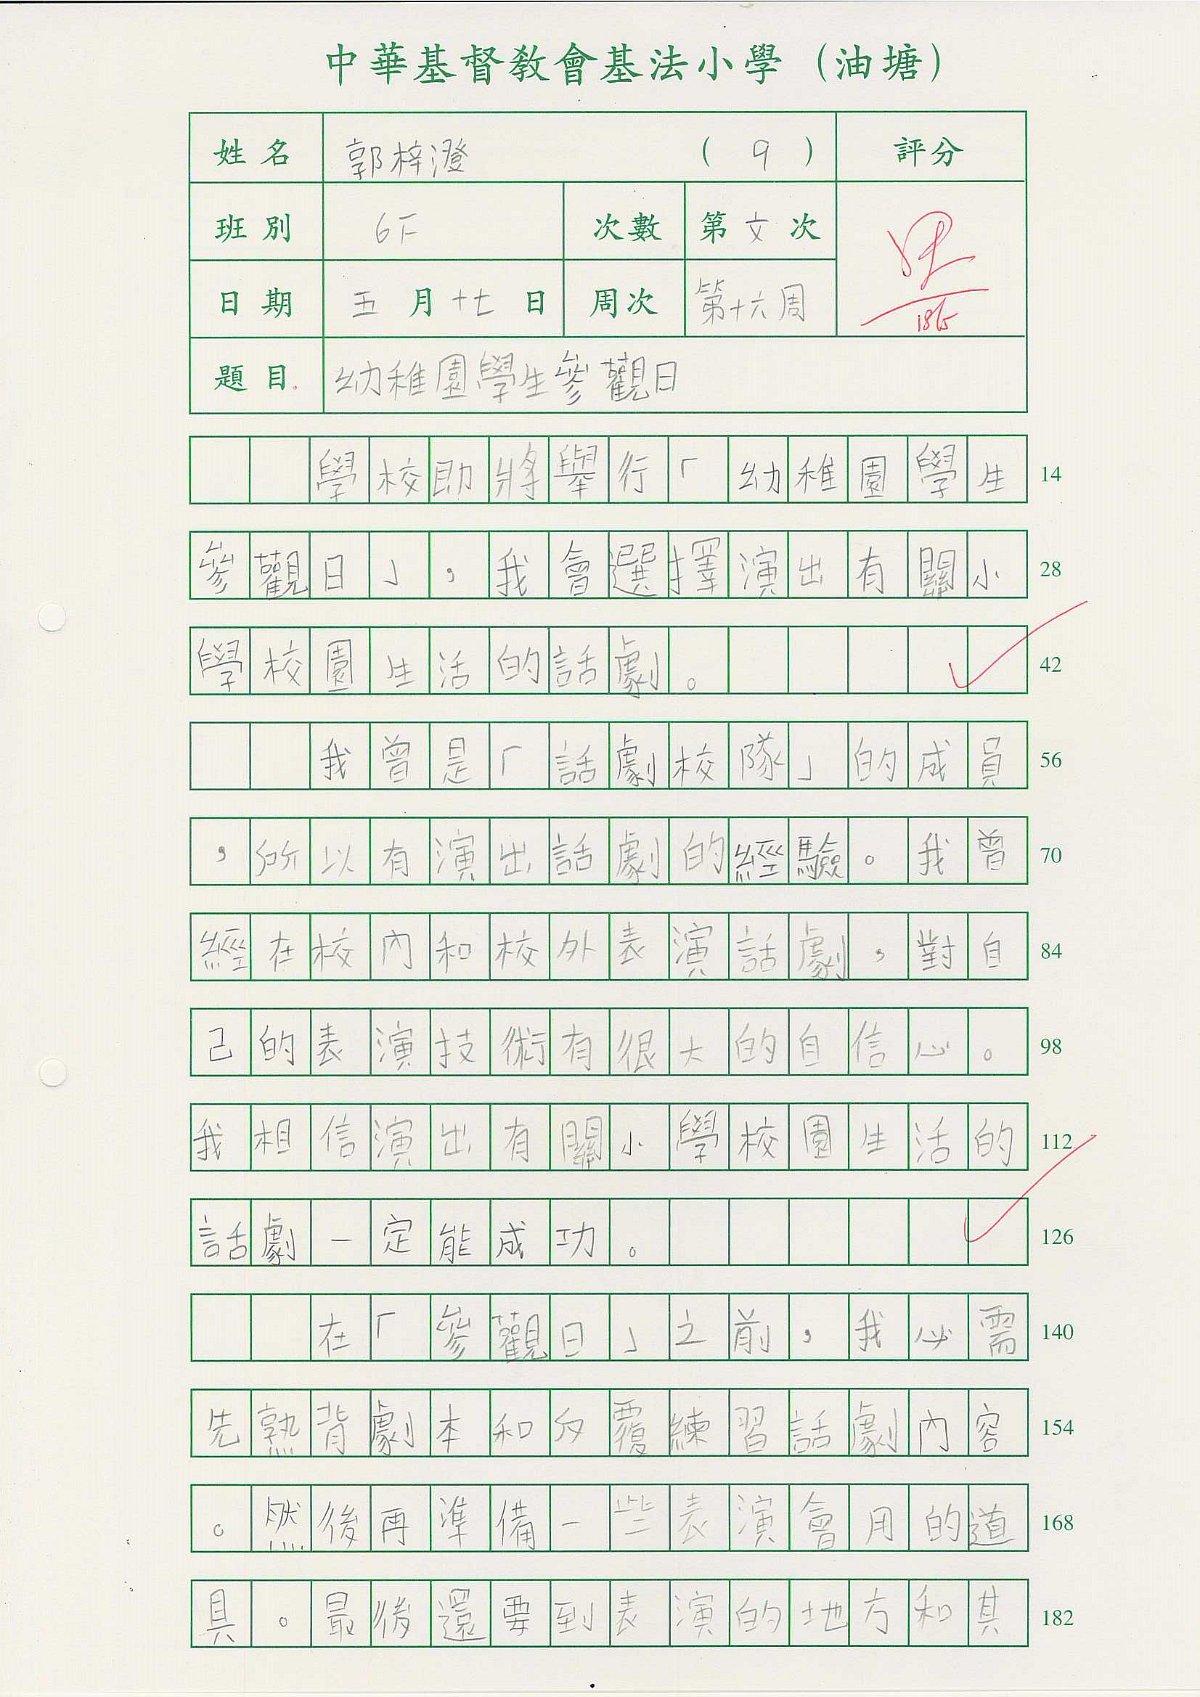 中華基督教會基法小學（油塘）
姓名 郭梓澄 （9） 評分
班別 6F 次數 第文次
日期 五月十七日 周次 第十六周
18/5
題目 幼稚園學生參觀日
學校即將舉行「幼稚園學生 14
參觀日」，我會選擇演出有關小 28
學校園生活的話劇。 42
我曾是「話劇校隊」的成員 56
，所以有演出話劇的經驗。我曾 70
經在校內和校外表演話劇，對自 84
己的表演技術有很大的自信心。 98
我相信演出有關小學校園生活的 112
話劇一定能成功。 126
在「參觀日」之前，我必需 140
先熟背劇本和反覆練習話劇內容 154
。然後再準備一些表演會用的道 168
具。最後還要到表演的地方和其 182